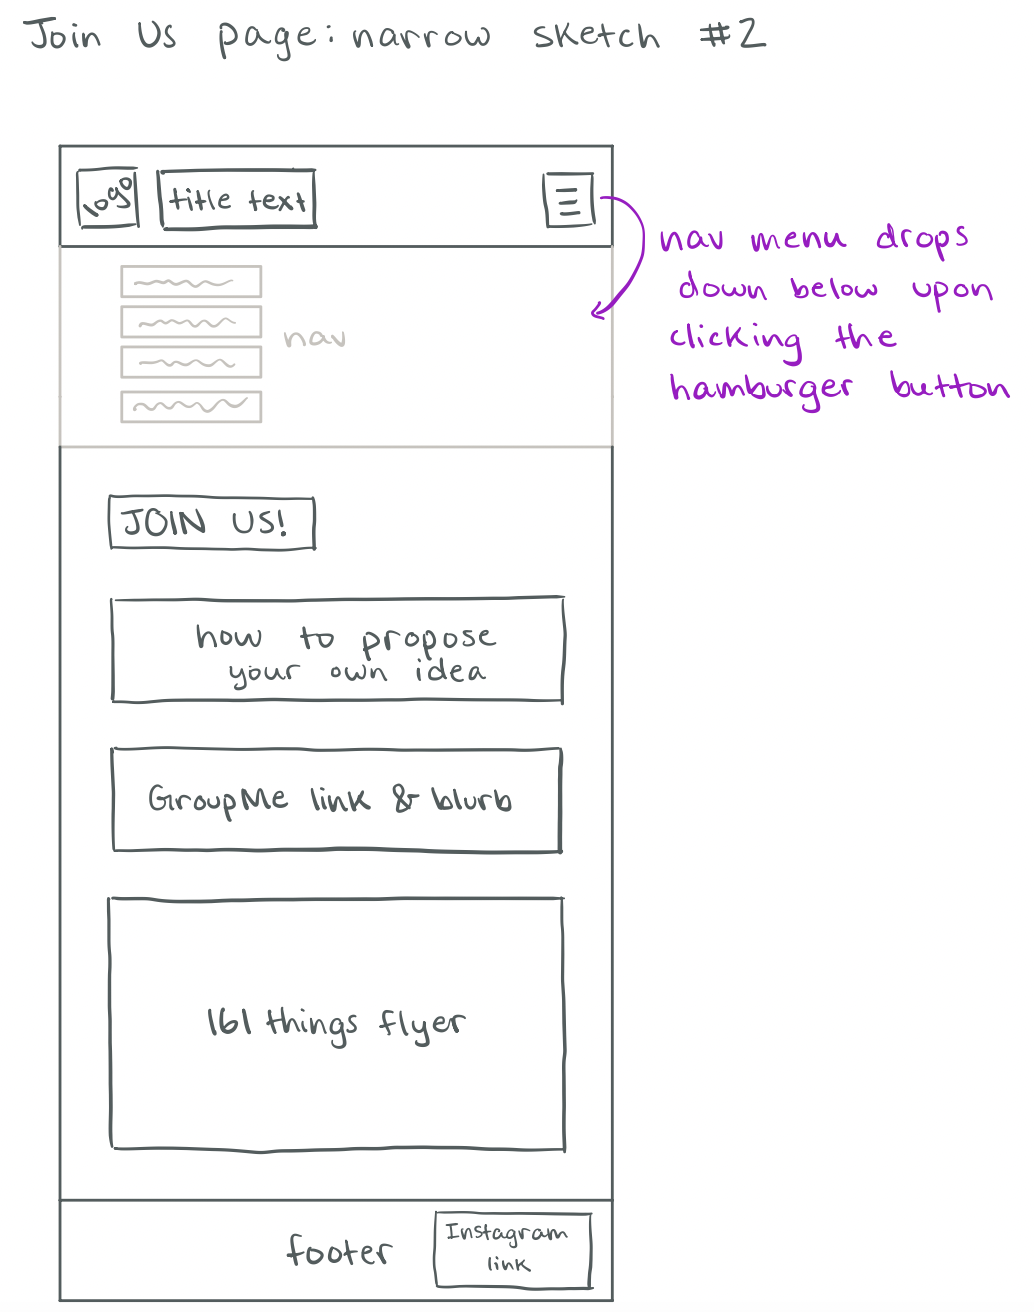 Join Us page: narrow sketch #2
logo
title text
nav menu drops
down below upon
clicking the
hamburger button
nav
JOIN US!
how to propose
your own idea
GroupMe link & blurb
161 things flyer
footer
Instagram
link